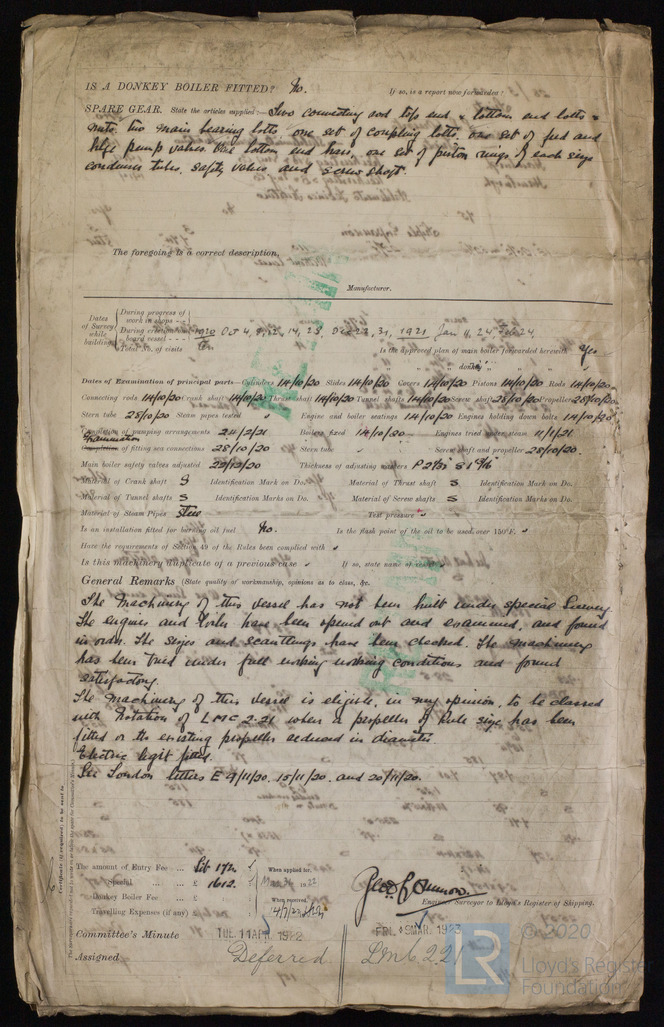 IS A DONKEY BOILER FITTED? No. If so, is a report now forwarded?
SPARE GEAR. State the articles supplied:— Two connecting rod top end & bottom end bolts &
nuts, two main bearing bolts, one set of coupling bolts, one set of feed and
bilge pump valves, one set of piston rings of each size
condenser tubes, safety valve and screw shaft.
The foregoing is a correct description,
Manufacturer.
Dates of Survey while building
During progress of work in shops - -
During erection on board vessel - - -
Total No. of visits
1920 Oct 4, 8, 12, 14, 28, Dec 22, 31, 1921 Jan 11, 24 Feb 24
Is the approved plan of main boiler forwarded herewith Yes
" " " donkey " " "
Dates of Examination of principal parts—Cylinders 14/10/20 Slides 14/10/20 Covers 14/10/20 Pistons 14/10/20 Rods 14/10/20
Connecting rods 14/10/20 Crank shaft 14/10/20 Thrust shaft 14/10/20 Tunnel shafts 14/10/20 Screw shaft 28/10/20 Propeller 28/10/20
Stern tube 28/10/20 Steam pipes tested Engine and boiler seatings 14/10/20 Engines holding down bolts 14/10/20
Completion of pumping arrangements 24/2/21 Boilers fixed 14/10/20 Engines tried under steam 11/1/21
Examination
Completion of fitting sea connections 28/10/20 Stern tube Screw shaft and propeller 28/10/20
Main boiler safety valves adjusted Thickness of adjusting washers
Material of Crank shaft S Identification Mark on Do. Material of Thrust shaft S Identification Mark on Do.
Material of Tunnel shafts S Identification Marks on Do. Material of Screw shafts S Identification Marks on Do.
Material of Steam Pipes Steel Test pressure
Is an installation fitted for burning oil fuel No. Is the flash point of the oil to be used over 150°F.
Have the requirements of Section 49 of the Rules been complied with
Is this machinery duplicate of a previous case If so, state name of vessel
General Remarks (State quality of workmanship, opinions as to class, &c.
The Machinery of this vessel has not been built under special Survey.
The engines and boiler have been opened out and examined, and found
in order. The sizes and scantlings have been checked. The machinery
has been tried under full working working conditions and found
satisfactory.
The Machinery of this vessel is eligible, in my opinion, to be classed
with Notation of LMC 2.21 when a propeller of Rule size has been
fitted or the existing propeller reduced in diameter
Electric light fitted.
See London letters E 9/11/20, 15/11/20, and 20/11/20.
The amount of Entry Fee ... £ When applied for,
Special ... £ 16.12.
Donkey Boiler Fee ... £ When received,
Travelling Expenses (if any) £
Engineer Surveyor to Lloyd's Register of Shipping.
Committee's Minute TUE. 11 APR. 1922 FRI. 9 MAR. 1923
Assigned Deferred LMC 2.21
© 2020
LR
Lloyd's Register
Foundation